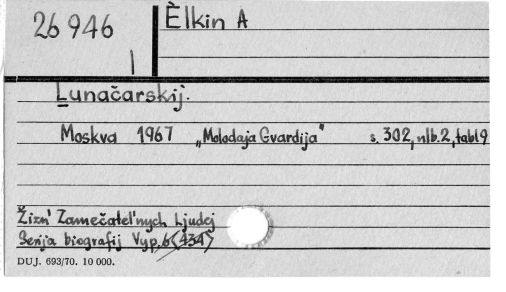 26 946
Èlkin A
Lunačarskij.
Moskva 1967 „Molodaja Gvardija" s. 302, nlb. 2, tabl 9
Žizn' Zamečatel'nych Ljudej
Serija biografij Vyp. 6 (434)
DUJ. 693/70. 10 000.